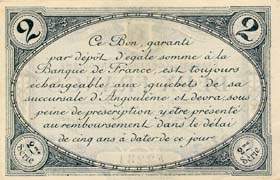 2
2
Ce Bon, garanti
par dépôt d'égale somme à la
Banque de France, est toujours
échangeable aux guichets de sa
succursale d'Angoulême et devra, sous
peine de prescription, y être présenté
au remboursement dans le délai
de cinq ans à dater de ce jour.
2me Série
2me Série